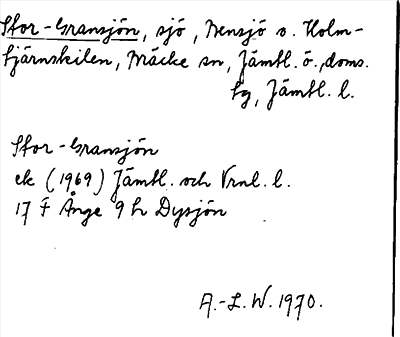 Stor-Gransjön, sjö, Nensjö o. Holm-
tjärnskilen, Bräcke sn, Jämtl. ö., doms.
tg, Jämtl. l.
Stor-Gransjön
ek (1969) Jämtl. och Vrnl. l.
17 F Ånge 9 h Dysjön
A.-L. W. 1970.